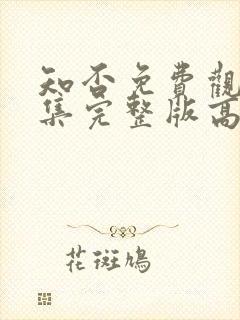 知否免費觀
集完整版高
花斑鳩